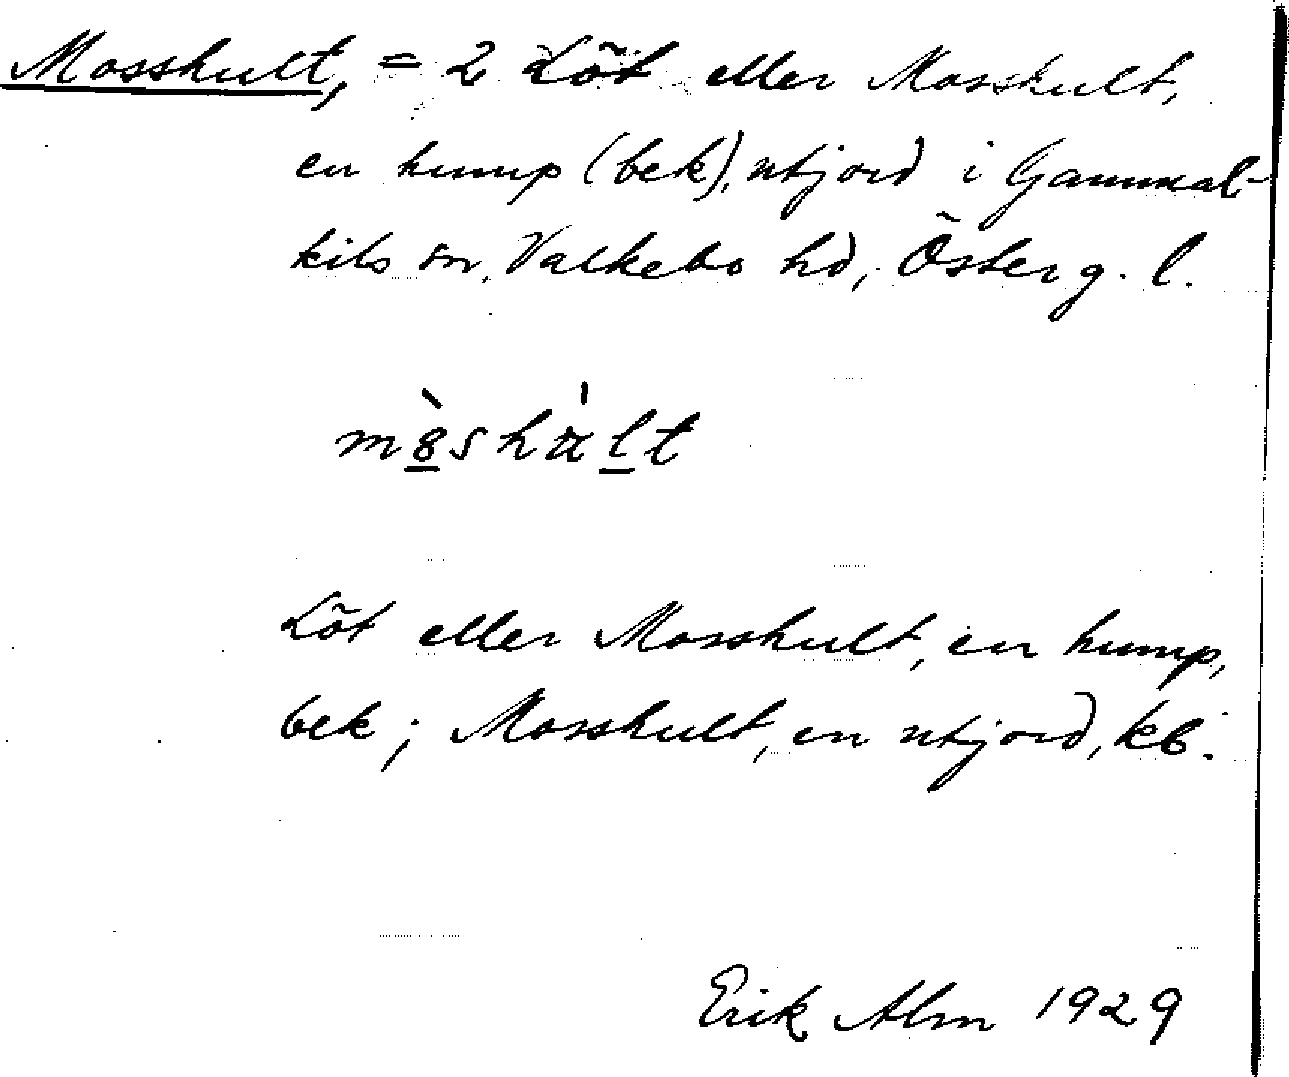 Mosshult, = 2 Löt eller Mosshult,
en hump (bek), utjord i Gammal-
kils sn, Valkebo hd, Österg. l.
mòshált
Löt eller Mosshult, en hump,
bek; Mosshult, en utjord, kb.
Erik Alm 1929